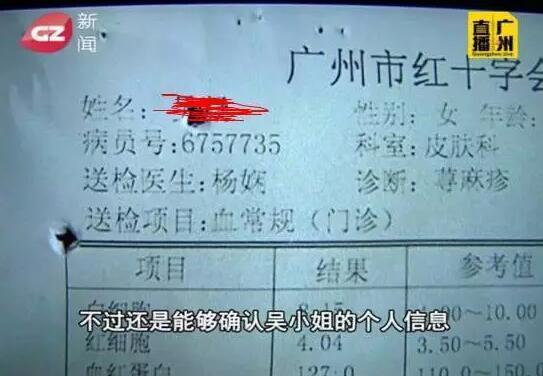 GZ 新闻
直播广州
Guangzhou Live
广州市红十字会
姓名:
性别: 女 年龄:
病员号:6757735
科室:皮肤科
送检医生:杨娴
诊断: 荨麻疹
送检项目:血常规(门诊)
项目 结果 参考值
白细胞 8.15 4.00~10.00
不过还是能够确认吴小姐的个人信息
红细胞 4.04 3.50~5.50
血红蛋白 127.0 110.0~150.